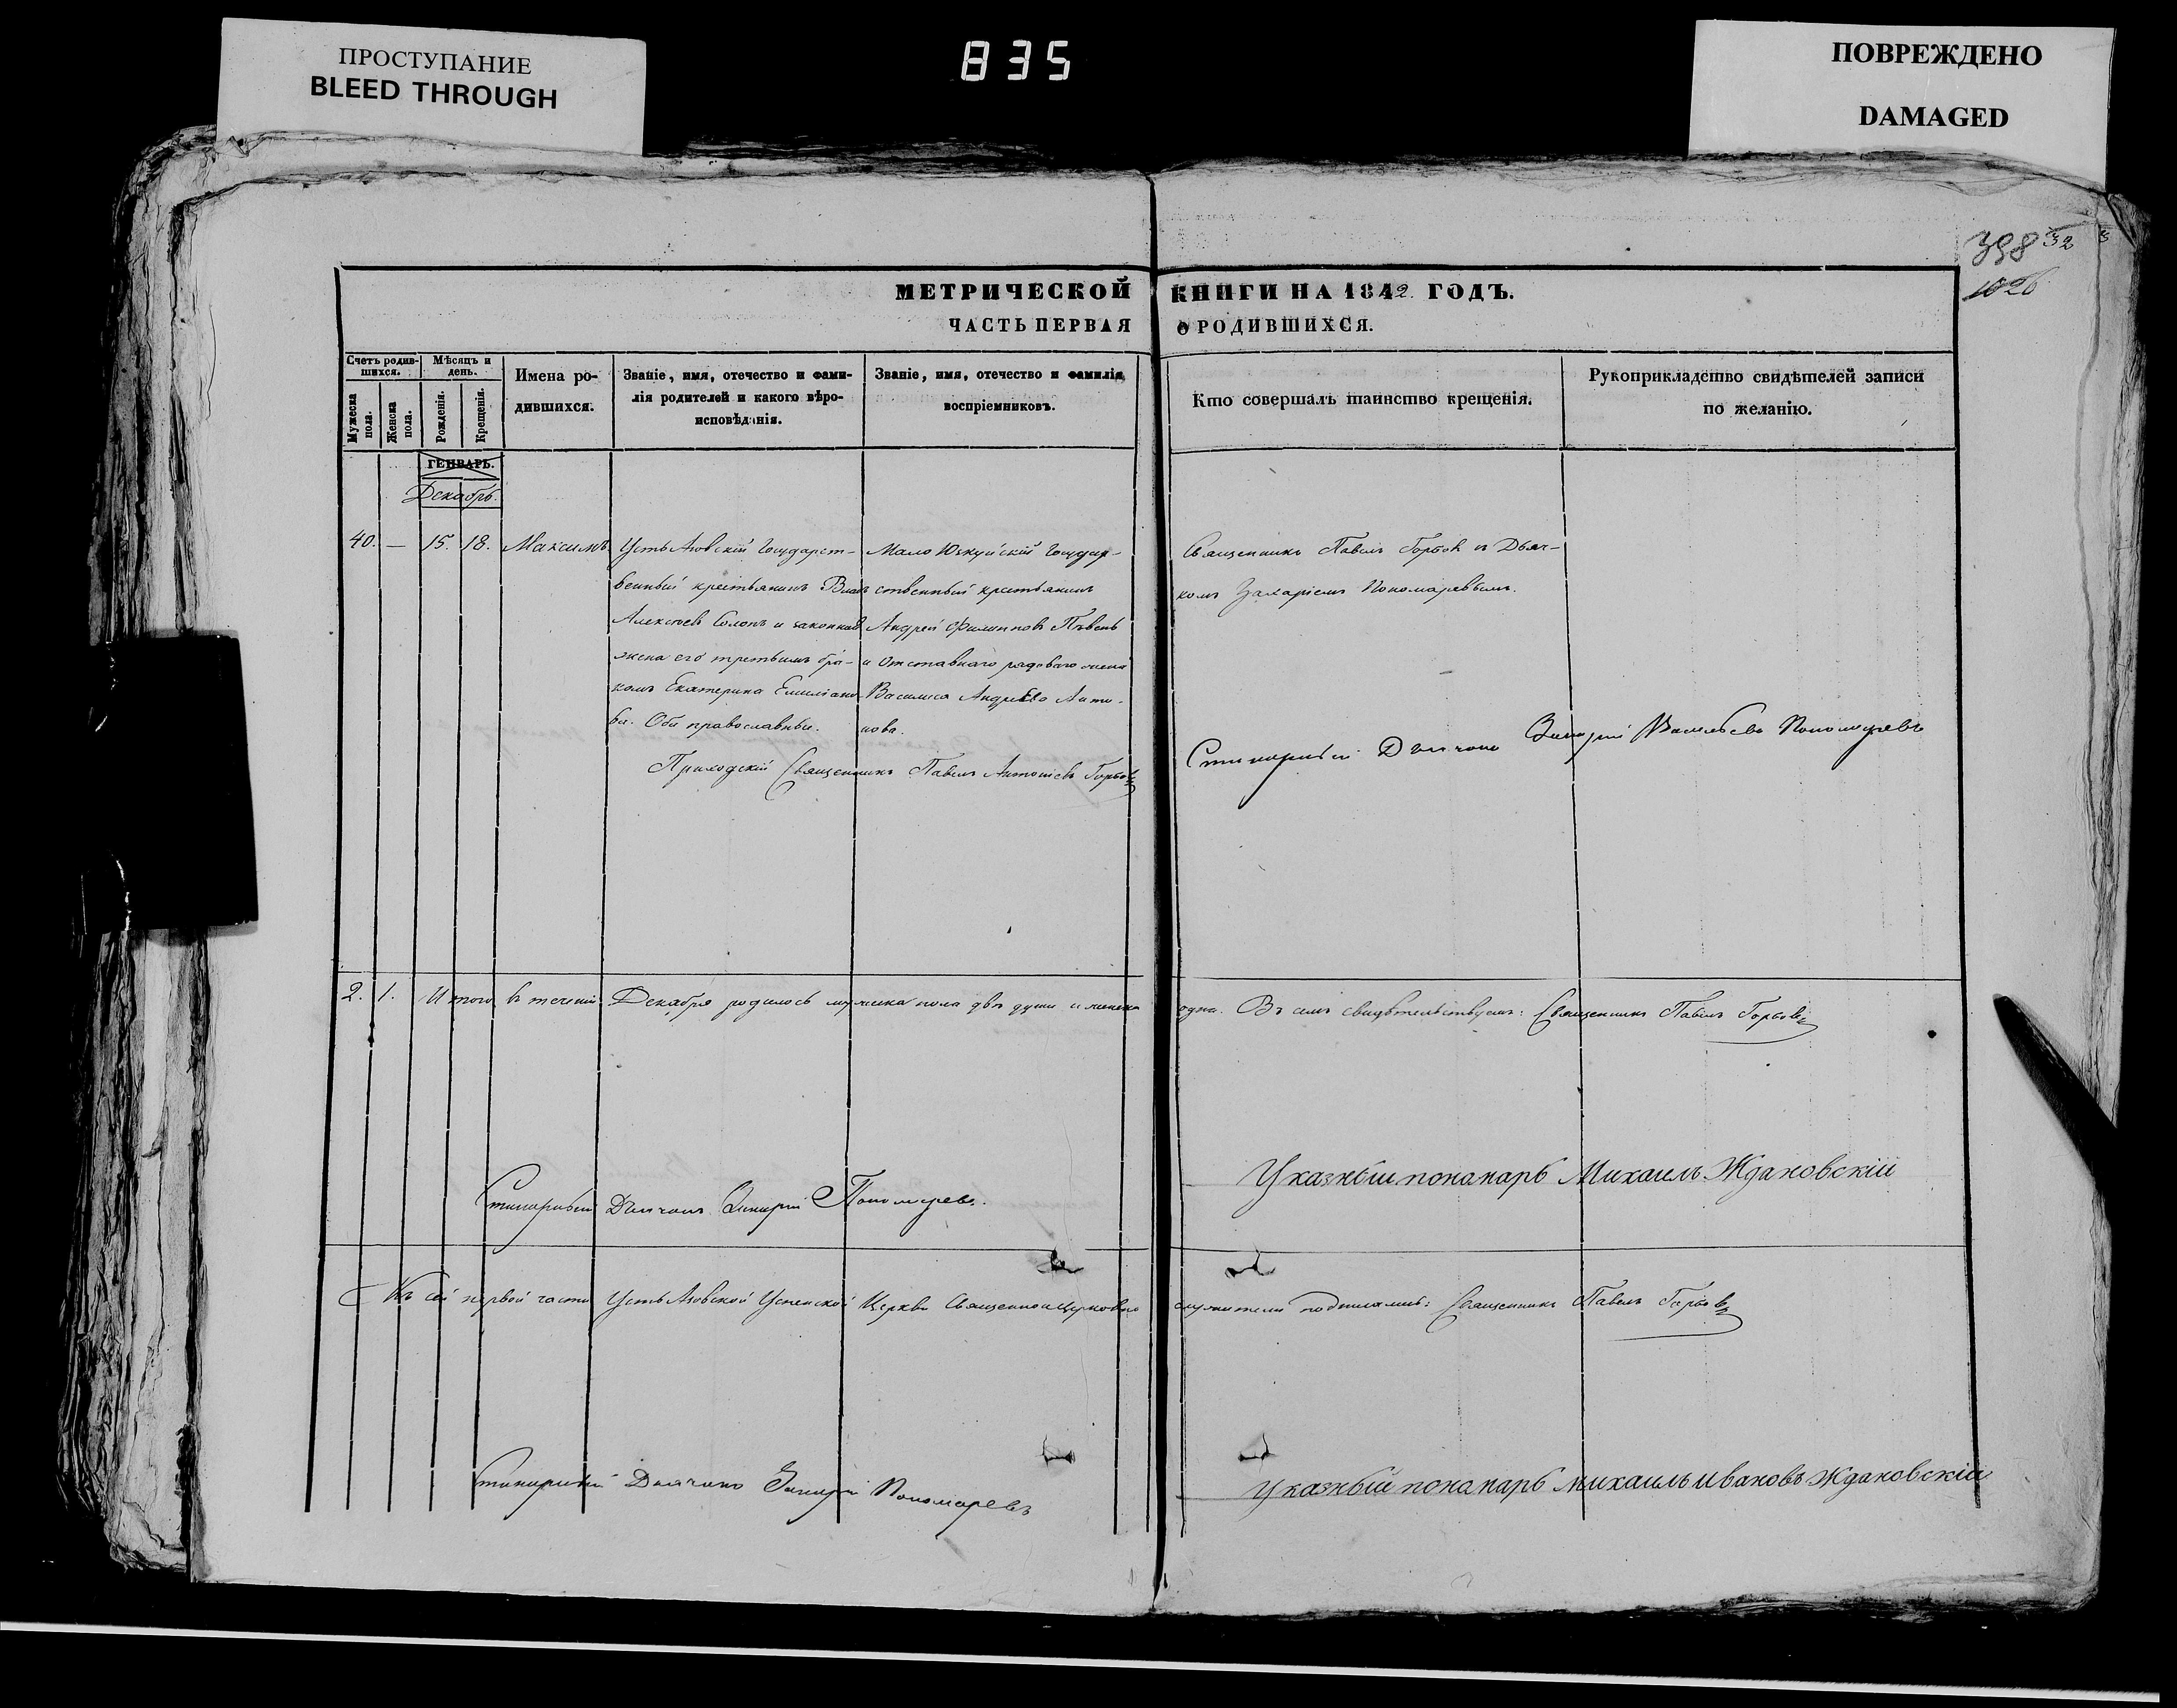 ПРОСТУПАНИЕ
BLEED THROUGH
835
ПОВРЕЖДЕНО
DAMAGED
398 32
1026
МЕТРИЧЕСКОЙ КНИГИ НА 1842. ГОДЪ.
ЧАСТЬ ПЕРВАЯ О РОДИВШИХСЯ.
Счетъ родив-
шихся.
Мужеска пола.
Женска пола.
Мѣсяцъ и
день.
Рожденія.
Крещенія.
Имена ро-
дившихся.
Званіе, имя, отечество и фами-
лія родителей и какого вѣро-
исповѣданія.
Званіе, имя, отечество и фамилія
воспріемниковъ.
Кто совершалъ таинство крещенія.
Рукоприкладство свидѣтелей записи
по желанію.
ГЕНВАРЬ.
Декабрь.
40. — 15. 18. Максимъ
Усть Азовскій Государст-
венный крестьянинъ
Алексѣевъ и законная
жена его третьимъ бра-
комъ Екатерина Емиліано
ва. Обѣ православные.
Мало Государ-
ственный крестьянинъ
Андрей Филипповъ
и Отставнаго рядоваго жена
Василиса Андреева Анти-
пова.
Священникъ Павелъ Горбовъ и Дьяч-
комъ Захаріемъ Пономаревымъ.
Приходскій Священникъ Павелъ Антоніевъ Горбовъ
Дьячокъ Захарій Васильевъ Пономаревъ
2. 1. Итого въ теченіи Декабря родилось мужеска пола двѣ души и женска одна. Въ семъ свидѣтельствуемъ: Священникъ Павелъ Горбовъ
Указный понамарь Михаилъ Ждановскій
Дьячокъ Захарій Пономаревъ.
Къ сей первой части Усть Азовской Успенской Церкви Священноцерковно служители подписались: Священникъ Павелъ Горбовъ
Дьячокъ Захарій Пономаревъ
Указный понамарь Михаилъ Ивановъ Ждановскій